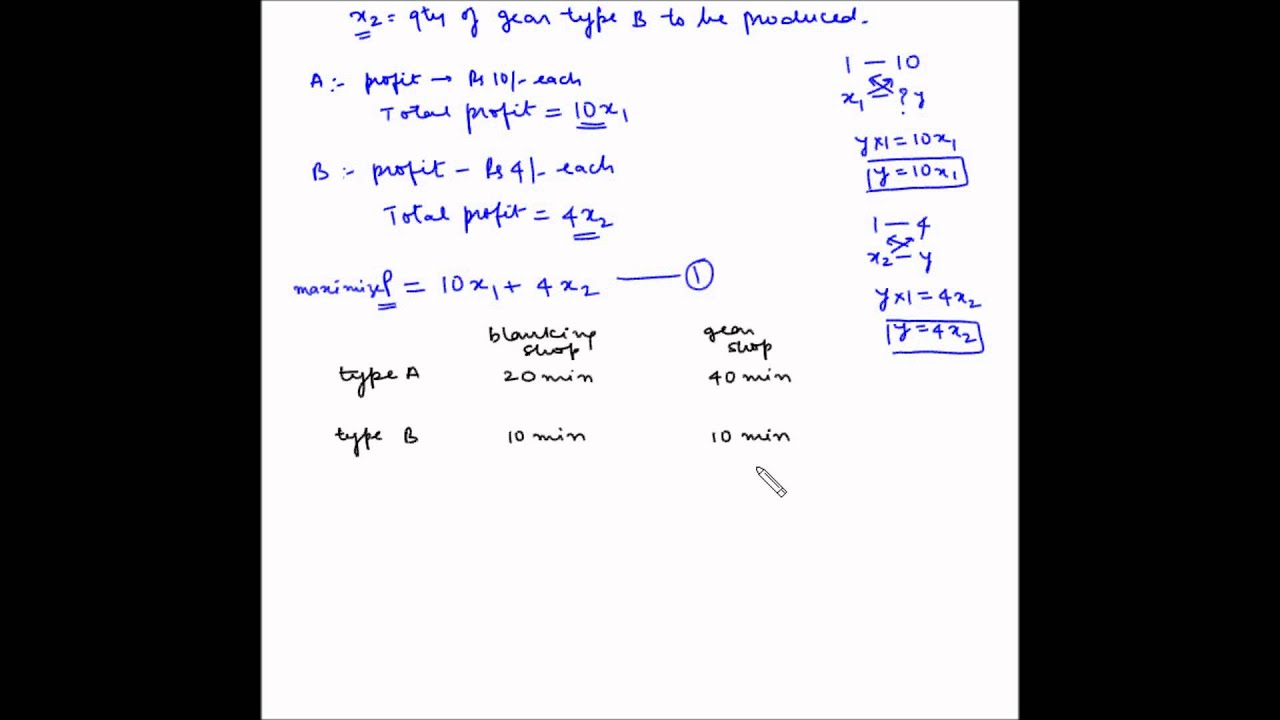 x2 = qty of gear type B to be produced.
A :- profit → Rs 10/- each
Total profit = 10x1
B :- profit - Rs 4/- each
Total profit = 4x2
maximize P = 10x1 + 4x2 —— ①
blanking shop gear shop
type A 20 min 40 min
type B 10 min 10 min
1 — 10
x1 — ? y
y×1 = 10x1
y = 10x1
1 — 4
x2 — y
y×1 = 4x2
y = 4x2